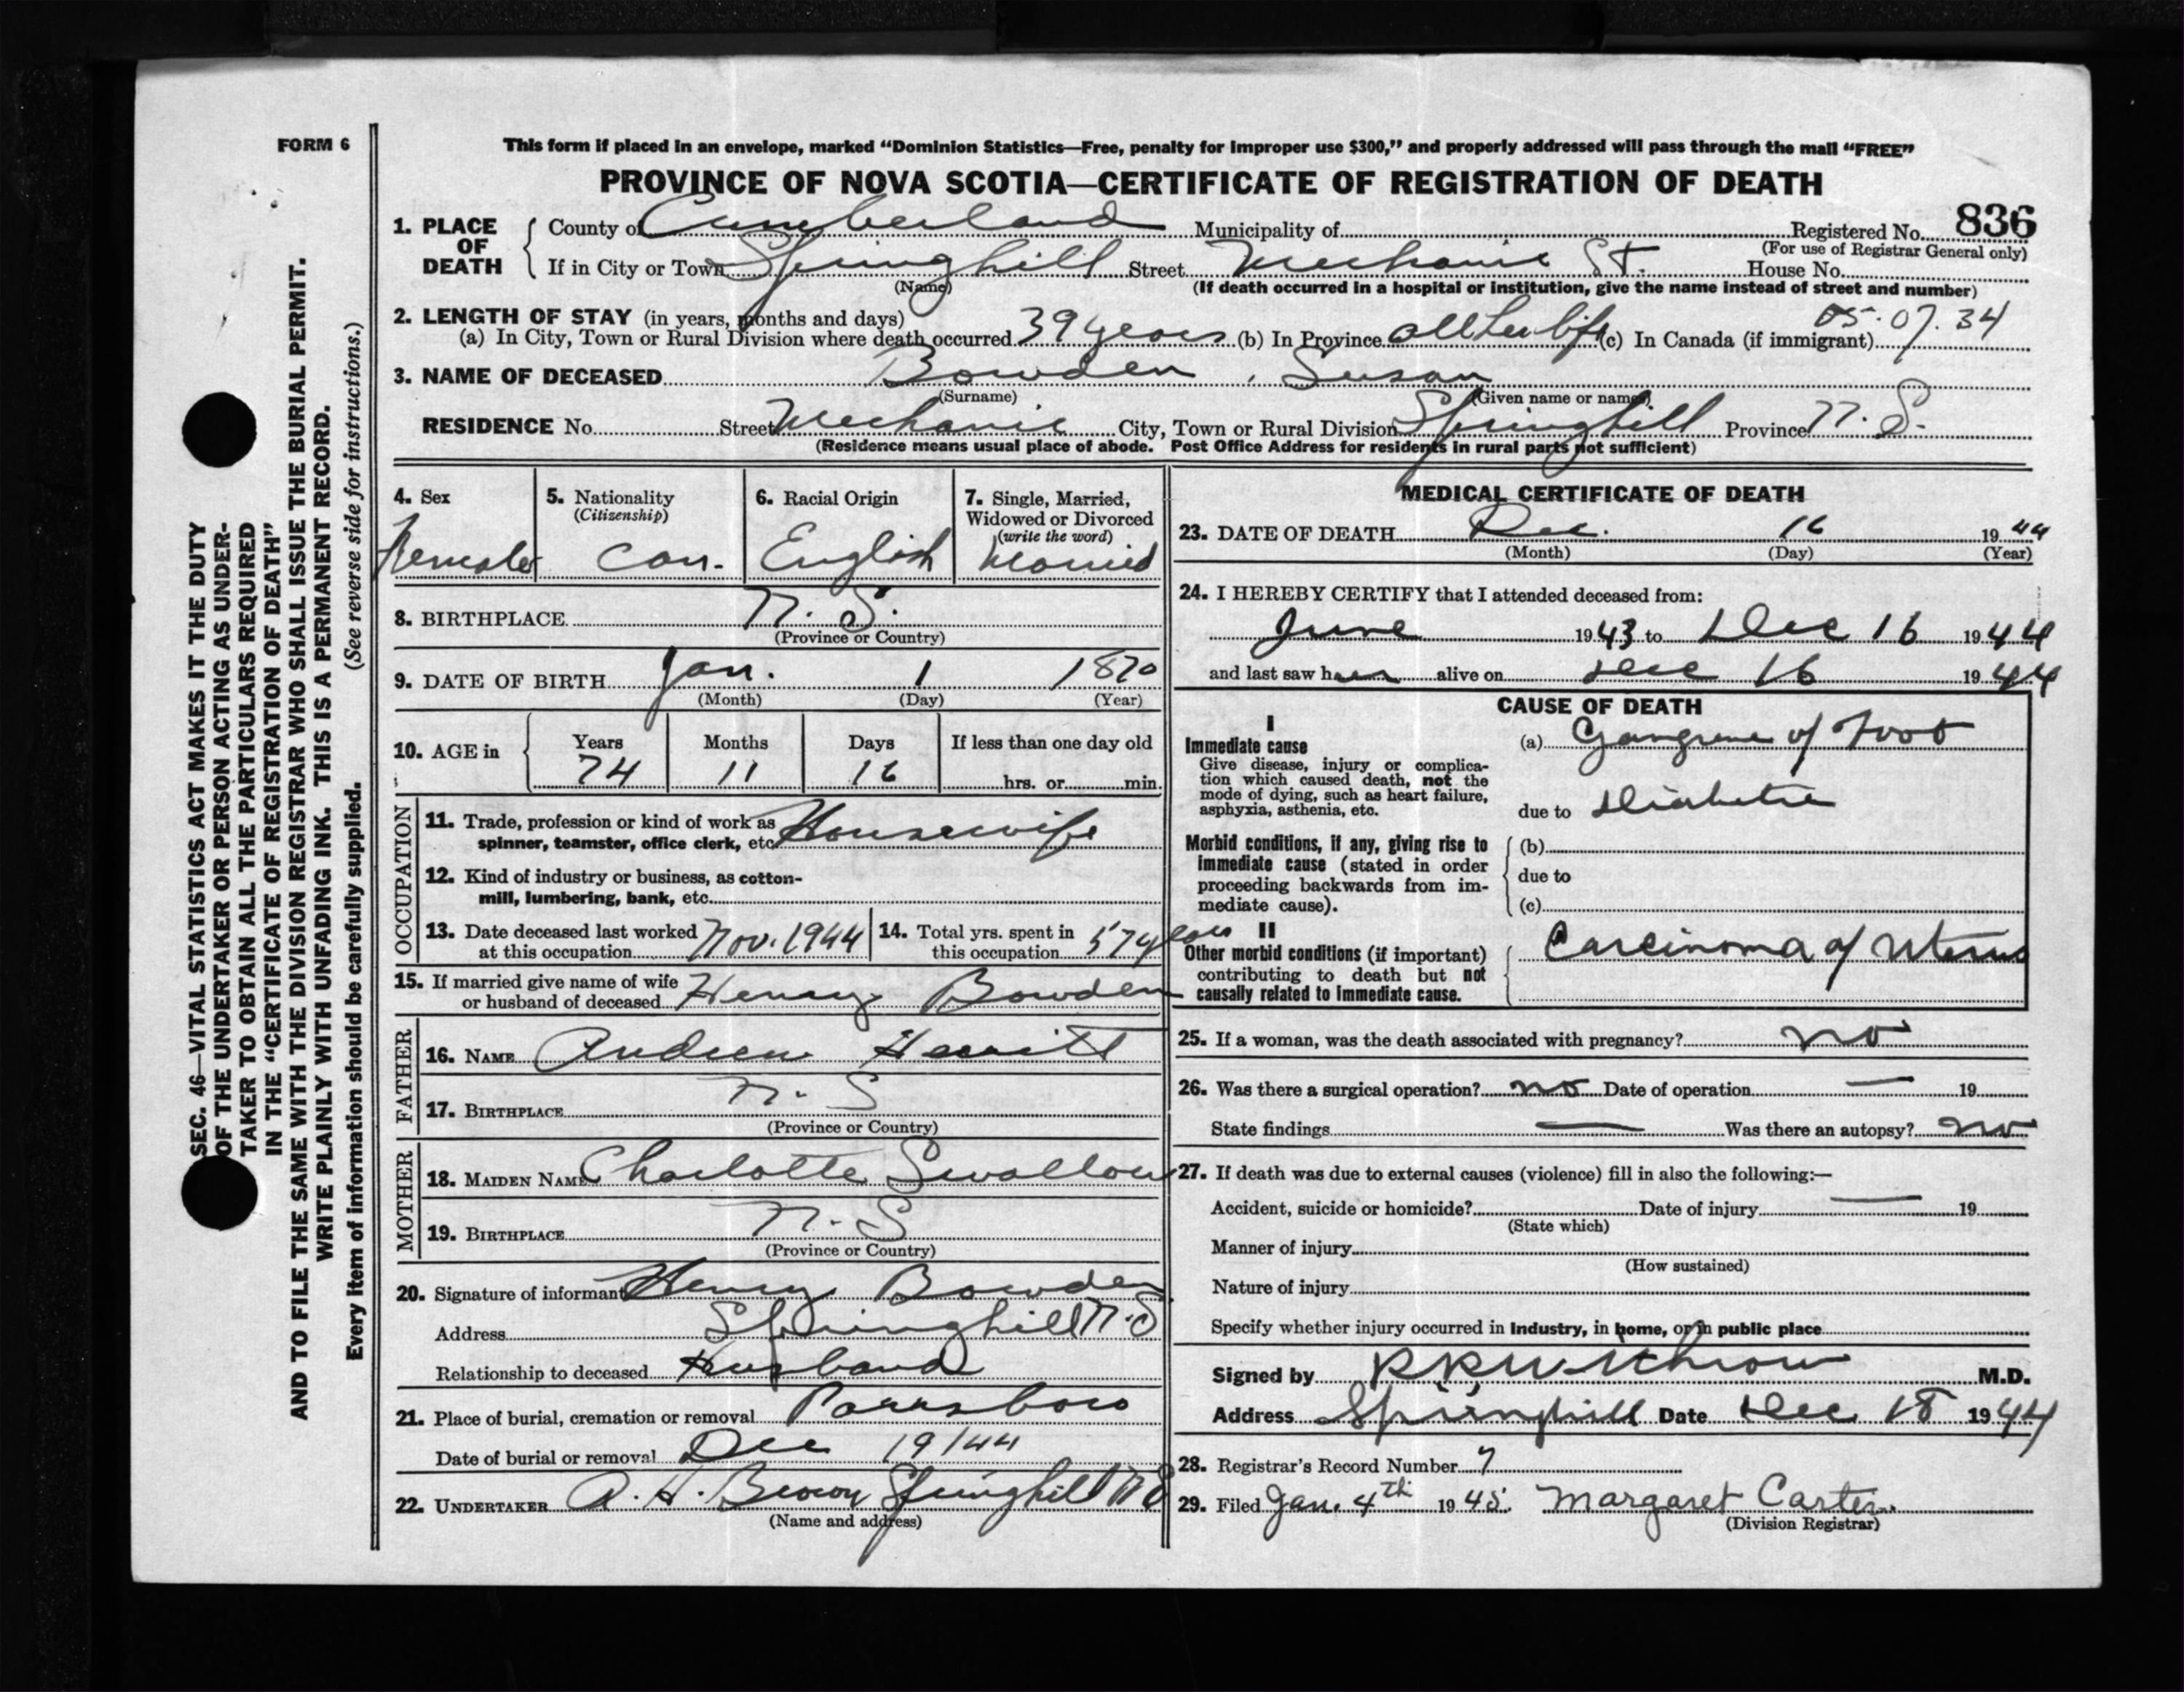 FORM 6
This form if placed in an envelope, marked “Dominion Statistics—Free, penalty for improper use $300,” and properly addressed will pass through the mail “FREE”
PROVINCE OF NOVA SCOTIA—CERTIFICATE OF REGISTRATION OF DEATH
1. PLACE OF DEATH County of Cumberland Municipality of Registered No. 836
(For use of Registrar General only)
If in City or Town Springhill Street Mechanic St. House No.
(Name) (If death occurred in a hospital or institution, give the name instead of street and number)
2. LENGTH OF STAY (in years, months and days) 05.07.34
(a) In City, Town or Rural Division where death occurred 39 years (b) In Province all her life (c) In Canada (if immigrant)
3. NAME OF DECEASED Bowden, Susan
(Surname) (Given name or names)
RESIDENCE No. Street Mechanic City, Town or Rural Division Springhill Province N.S.
(Residence means usual place of abode. Post Office Address for residents in rural parts not sufficient)
4. Sex
Female
5. Nationality
(Citizenship)
Can.
6. Racial Origin
English
7. Single, Married,
Widowed or Divorced
(write the word)
Married
8. BIRTHPLACE N.S.
(Province or Country)
9. DATE OF BIRTH Jan. 1 1870
(Month) (Day) (Year)
10. AGE in Years Months Days If less than one day old
74 11 16 hrs. or min.
OCCUPATION
11. Trade, profession or kind of work as
spinner, teamster, office clerk, etc. Housewife
12. Kind of industry or business, as cotton-
mill, lumbering, bank, etc.
13. Date deceased last worked
at this occupation Nov. 1944
14. Total yrs. spent in
this occupation 57 years
15. If married give name of wife
or husband of deceased Henry Bowden
FATHER
16. NAME Andrew Hewitt
17. BIRTHPLACE N.S
(Province or Country)
MOTHER
18. MAIDEN NAME Charlotte Swallow
19. BIRTHPLACE N.S
(Province or Country)
20. Signature of informant Henry Bowden
Address Springhill N.S
Relationship to deceased Husband
21. Place of burial, cremation or removal Parrsboro
Date of burial or removal Dec 19/44
22. UNDERTAKER A. H. Brown Springhill NS
(Name and address)
MEDICAL CERTIFICATE OF DEATH
23. DATE OF DEATH Dec. 16 1944
(Month) (Day) (Year)
24. I HEREBY CERTIFY that I attended deceased from:
June 1943 to Dec 16 1944
and last saw her alive on Dec 16 1944
CAUSE OF DEATH
I
Immediate cause
Give disease, injury or complica-
tion which caused death, not the
mode of dying, such as heart failure,
asphyxia, asthenia, etc.
(a) Gangrene of Foot
due to Diabetic
Morbid conditions, if any, giving rise to
immediate cause (stated in order
proceeding backwards from im-
mediate cause).
(b)
due to
(c)
II
Other morbid conditions (if important)
contributing to death but not
causally related to immediate cause.
Carcinoma of Uterus
25. If a woman, was the death associated with pregnancy? no
26. Was there a surgical operation? no Date of operation — 19
State findings — Was there an autopsy? no
27. If death was due to external causes (violence) fill in also the following:—
Accident, suicide or homicide? Date of injury — 19
(State which)
Manner of injury
(How sustained)
Nature of injury
Specify whether injury occurred in industry, in home, or in public place
Signed by M.D.
Address Springhill Date Dec 18 1944
28. Registrar's Record Number 7
29. Filed Jan. 4th 1945. Margaret Carter.
(Division Registrar)
SEC. 46—VITAL STATISTICS ACT MAKES IT THE DUTY
OF THE UNDERTAKER OR PERSON ACTING AS UNDER-
TAKER TO OBTAIN ALL THE PARTICULARS REQUIRED
IN THE “CERTIFICATE OF REGISTRATION OF DEATH”
AND TO FILE THE SAME WITH THE DIVISION REGISTRAR WHO SHALL ISSUE THE BURIAL PERMIT.
WRITE PLAINLY WITH UNFADING INK. THIS IS A PERMANENT RECORD.
Every item of information should be carefully supplied. (See reverse side for instructions.)